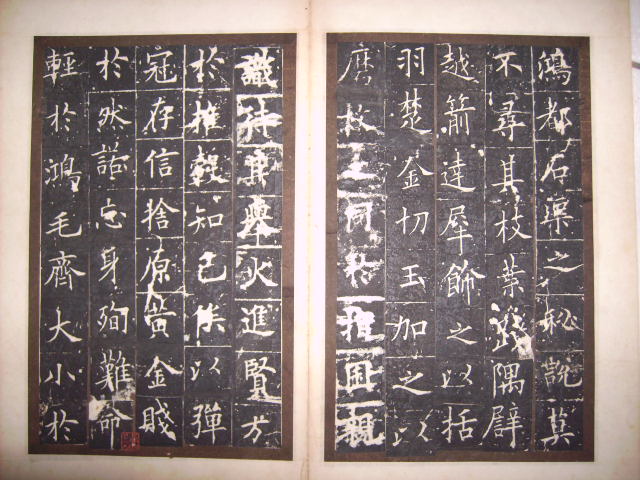 鴻都石渠之祕說莫
不尋其枝葉踐隅辟
越箭達犀飾之以括
羽楚金切玉加之以
磨故推困親
識待其舉火進賢方
於推轂知己俟以彈
冠存信捨原黃金賤
於然諾忘身殉難命
輕於鴻毛齊大小於